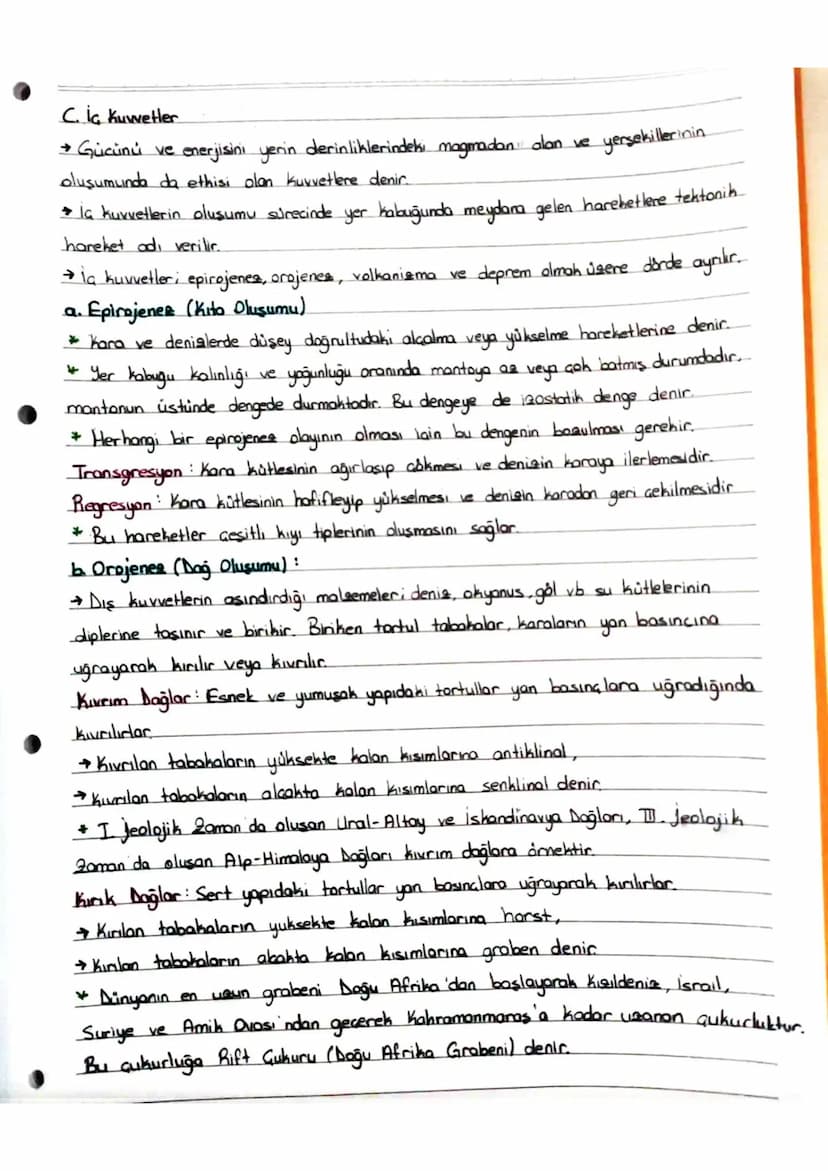 C. İç Kuvvetler
→ Gücünü ve enerjisini yerin derinliklerindeki magmadan alan ve yerşekillerinin
oluşumunda da etkisi olan kuvvetlere denir.
→ İç kuvvetlerin oluşumu sürecinde yer kabuğunda meydana gelen hareketlere tektonik
hareket adı verilir.
→ İç kuvvetler; epirojenez, orojenez, volkanizma ve deprem olmak üzere dörde ayrılır.
a. Epirojenez (Kıta Oluşumu)
* Kara ve denizlerde düşey doğrultudaki alçalma veya yükselme hareketlerine denir.
* Yer kabuğu kalınlığı ve yoğunluğu oranında mantoya az veya çok batmış durumdadır.
mantonun üstünde dengede durmaktadır. Bu dengeye de izostatik denge denir.
* Herhangi bir epirojenez olayının olması için bu dengenin bozulması gerekir.
Transgresyon : Kara kütlesinin ağırlaşıp çökmesi ve denizin karaya ilerlemesidir.
Regresyon : Kara kütlesinin hafifleyip yükselmesi ve denizin karadan geri çekilmesidir
* Bu hareketler çeşitli kıyı tiplerinin oluşmasını sağlar.
b. Orojenez (Dağ Oluşumu) :
→ Dış kuvvetlerin aşındırdığı malzemeler; deniz, okyanus, göl vb su kütlelerinin
diplerine taşınır ve birikir. Biriken tortul tabakalar, karaların yan basıncına
uğrayarak kırılır veya kıvrılır.
Kıvrım Dağlar : Esnek ve yumuşak yapıdaki tortullar yan basınçlara uğradığında
kıvrılırlar.
→ Kıvrılan tabakaların yüksekte kalan kısımlarına antiklinal,
→ Kıvrılan tabakaların alçakta kalan kısımlarına senklinal denir.
* I. Jeolojik Zaman'da oluşan Ural-Altay ve İskandinavya Dağları, III. Jeolojik
Zaman'da oluşan Alp-Himalaya Dağları kıvrım dağlara örnektir.
Kırık Dağlar : Sert yapıdaki tortullar yan basınçlara uğrayarak kırılırlar.
→ Kırılan tabakaların yuksekte kalan kısımlarına horst,
→ Kırılan tabakaların alçakta kalan kısımlarına graben denir.
* Dünyanın en uzun grabeni Doğu Afrika'dan başlayarak Kızıldeniz, İsrail,
Suriye ve Amik Ovası'ndan geçerek Kahramanmaraş'a kadar uzanan çukurluktur.
Bu çukurluğa Rift Çukuru (Doğu Afrika Grabeni) denir.